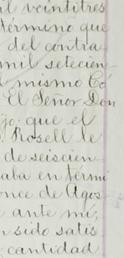 il veintitres
término que
del contra
mil setecien
l mismo Có
El Señor Don
jo que el
Rosell le
de seiscien
aba en térmi
once de Agos
ante mi,
n sido satis
cantidad